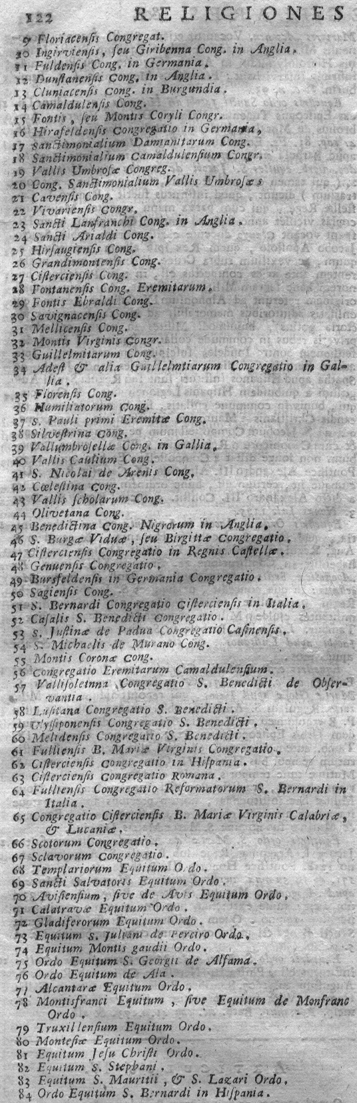 122 RELIGIONES
9 Floriacensis Congregat.
10 Ingirviensis, seu Giribenna Cong. in Anglia.
11 Fuldensis Cong. in Germania.
12 Dunstanensis Cong. in Anglia.
13 Cluniacensis Cong. in Burgundia.
14 Camaldulensis Cong.
15 Fontis, seu Montis Coryli Congr.
16 Hirsfeldensis Congregatio in Germania,
17 Sanctimonialium Damianitarum Cong.
18 Sanctimonialium Camaldulensium Congr.
19 Vallis Umbrosæ Congreg.
20 Cong. Sanctimonialium Vallis Umbrosæs
21 Cavensis Cong.
22 Vivariensis Congr.
23 Sancti Lanfranchi Cong. in Anglia.
24 Sancti Arialdi Cong.
25 Hirsaugiensis Cong.
26 Grandimontensis Cong.
27 Cisterciensis Cong.
28 Fontanensis Cong. Eremitarum.
29 Fontis Ebraldi Cong.
30 Savignacensis Cong.
31 Mellicensis Cong.
32 Montis Virginis Congr.
33 Guillelmitarum Cong.
34 Adest & alia Guillelmtiarum Congregatio in Gal-
lia.
35 Florensis Cong.
36 Humiliatorum Cong.
37 S. Pauli primi Eremitæ Cong.
38 Silvestrina Cong.
39 Vallumbrosellæ Cong. in Gallia.
40 Vallis Caulium Cong.
41 S. Nicolai de Arenis Cong.
42 Cœlestina Cong.
43 Vallis scholarum Cong.
44 Olivetana Cong.
45 Benedictina Cong. Nigrorum in Anglia.
46 S. Burgæ Viduæ, seu Birgittæ Congregatio.
47 Cisterciensis Congregatio in Regnis Castellæ.
48 Genuensis Congregatio.
49 Bursfeldensis in Germania Congregatio.
50 Sagiensis Cong.
51 S. Bernardi Congregatio Cisterciensis in Italia.
52 Casalis S. Benedicti Congregatio.
53 S. Justinæ de Padua Congregatio Casinensis.
54 S. Michaelis de Murano Cong.
55 Montis Coronæ Cong.
56 Congregatio Eremitarum Camaldulensium.
57 Vallisoletana Congregatio S. Benedicti de Obser-
vantia.
58 Lusitana Congregatio S. Benedicti.
59 Ulyssiponensis Congregatio S. Benedicti.
60 Melidensis Congregatio S. Benedicti.
61 Fulliensis B. Mariæ Virginis Congregatio.
62 Cisterciensis Congregatio in Hispania.
63 Cisterciensis Congregatio Romana.
64 Fulliensis Congregatio Reformatorum S. Bernardi in
Italia.
65 Congregatio Cisterciensis B. Mariæ Virginis Calabriæ,
& Lucaniæ.
66 Scotorum Congregatio.
67 Sclavorum Congregatio.
68 Templariorum Equitum Ordo.
69 Sancti Salvatoris Equitum Ordo.
70 Avisiensium, sive de Avis Equitum Ordo.
71 Calatravæ Equitum Ordo.
72 Gladiferorum Equitum Ordo.
73 Equitum S. Juliani de Pereiro Ordo.
74 Equitum Montis gaudii Ordo.
75 Ordo Equitum S. Georgii de Alfama.
76 Ordo Equitum de Ala.
77 Alcantaræ Equitum Ordo.
78 Montisfranci Equitum, sive Equitum de Monfranc
Ordo.
79 Truxillensium Equitum Ordo.
80 Montesiæ Equitum Ordo.
81 Equitum Jesu Christi Ordo.
82 Equitum S. Stephani.
83 Equitum S. Mauritii, & S. Lazari Ordo.
84 Ordo Equitum S. Bernardi in Hispania.